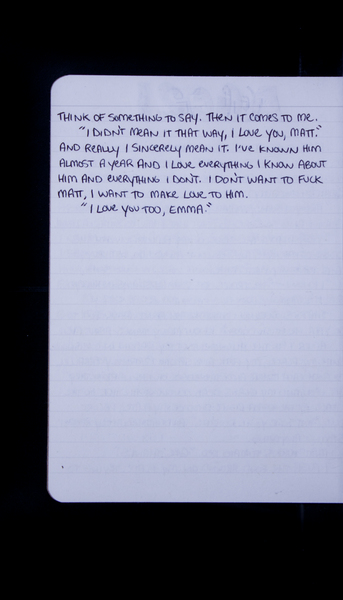 THINK OF SOMETHING TO SAY. THEN IT COMES TO ME.
"I DIDN'T MEAN IT THAT WAY, I LOVE YOU, MATT."
AND REALLY I SINCERELY MEAN IT. I'VE KNOWN HIM
ALMOST A YEAR AND I LOVE EVERYTHING I KNOW ABOUT
HIM AND EVERYTHING I DON'T. I DON'T WANT TO FUCK
MATT, I WANT TO MAKE LOVE TO HIM.
"I LOVE YOU TOO, EMMA."